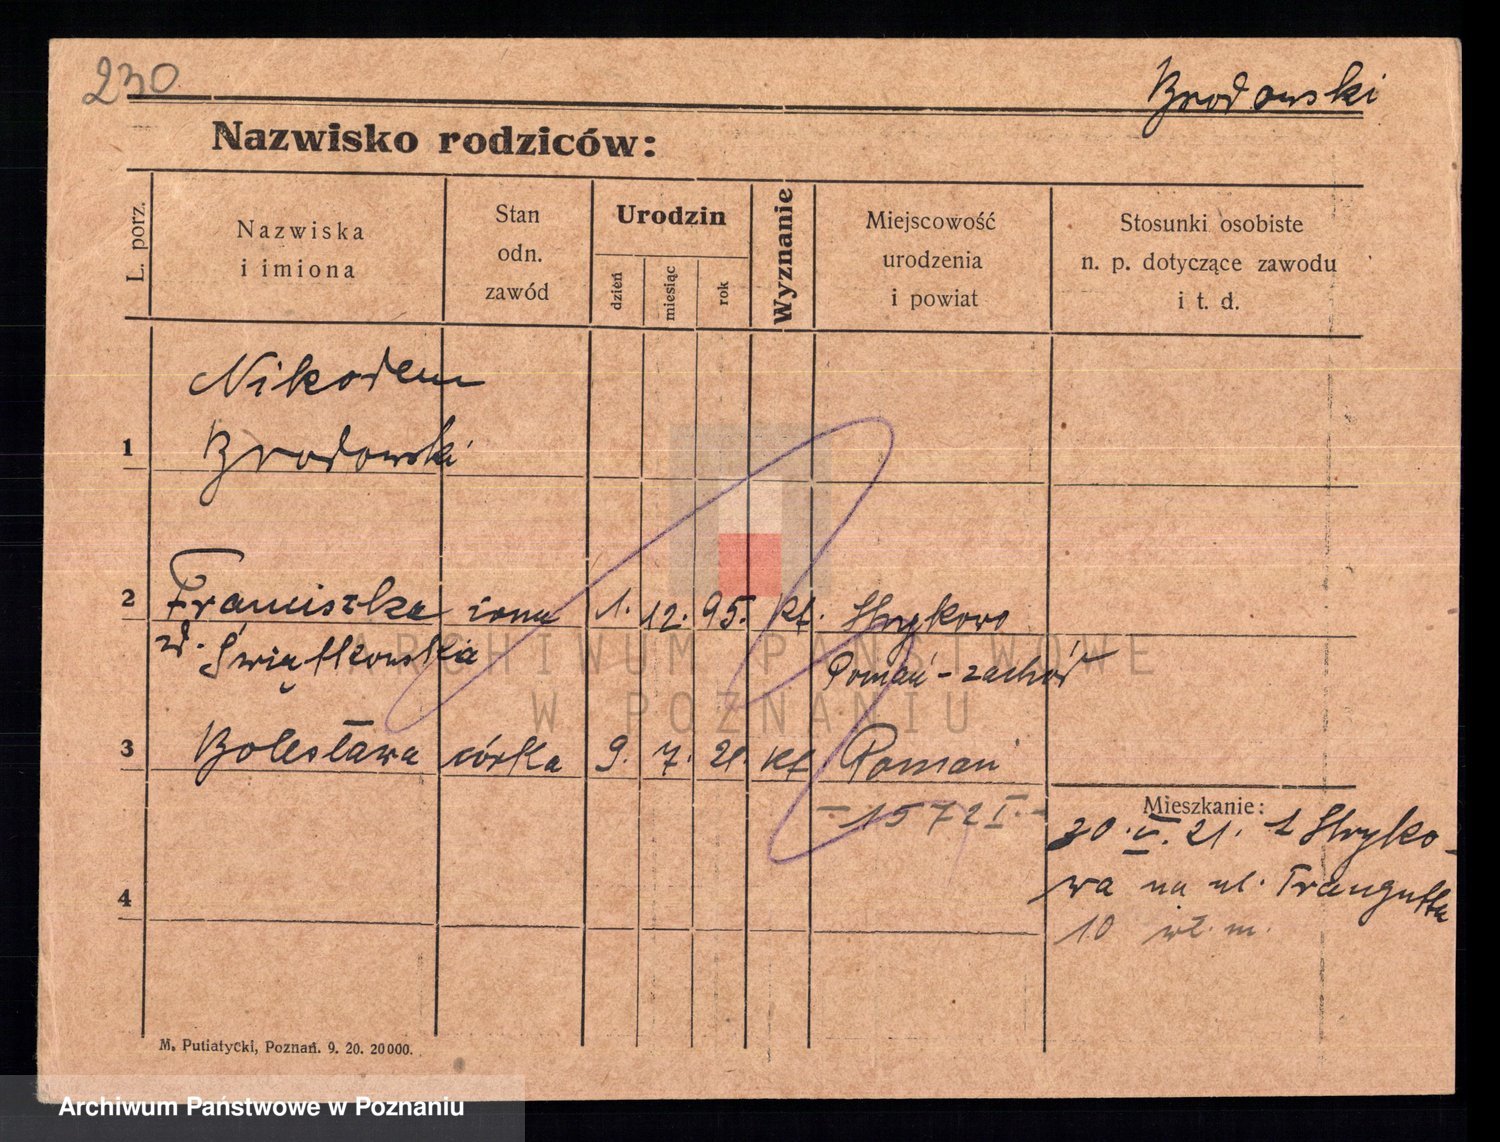 230
Brodowski
Nazwisko rodziców:
L. porz.
Nazwiska
i imiona
Stan
odn.
zawód
Urodzin
dzień
miesiąc
rok
Wyznanie
Miejscowość
urodzenia
i powiat
Stosunki osobiste
n. p. dotyczące zawodu
i t. d.
Nikodem
1 Brodowski
2 Franciszka żona 1. 12. 95. kt. Strykowo
zd. Świątkowska Poznań-zachód
3 Bolesława córka 9. 7. 21. kt Poznań
- 1572 I. -
Mieszkanie:
20. V. 21. z Stryko-
wa na ul. Traugutta
10 wł. m.
4
M. Putiatycki, Poznań. 9. 20. 20000.
ARCHIWUM PAŃSTWOWE
W POZNANIU
Archiwum Państwowe w Poznaniu